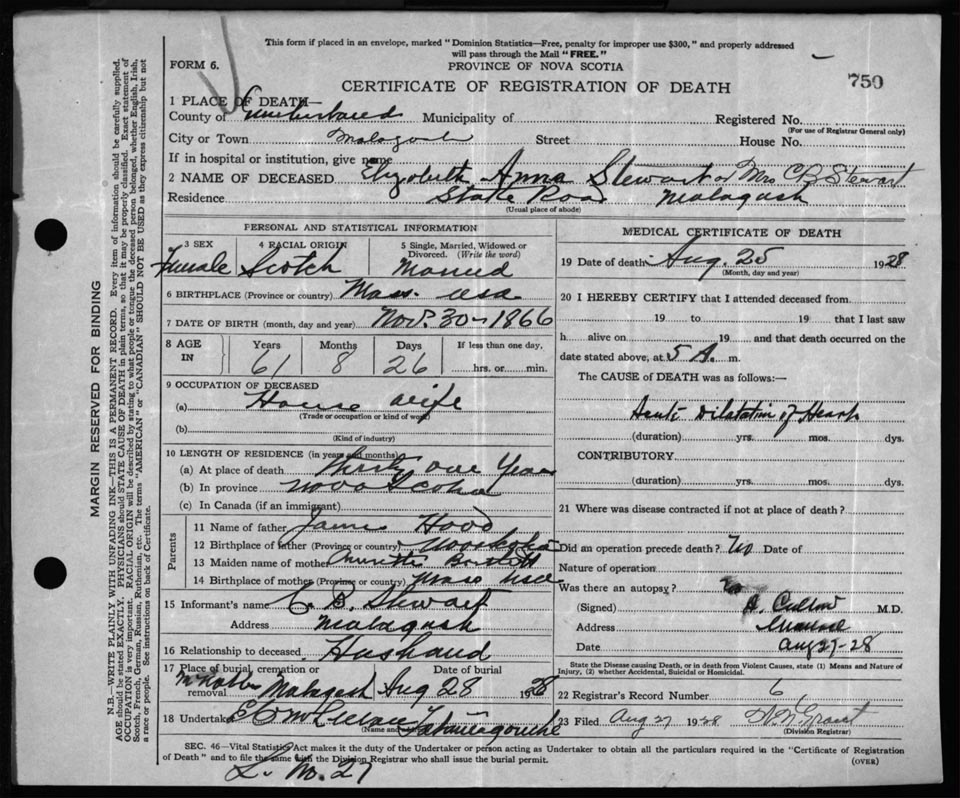 This form if placed in an envelope, marked "Dominion Statistics—Free, penalty for improper use $300," and properly addressed
will pass through the Mail "FREE."
FORM 6.
PROVINCE OF NOVA SCOTIA
CERTIFICATE OF REGISTRATION OF DEATH
750
1 PLACE OF DEATH—
County of Cumberland Municipality of Registered No.
(For use of Registrar General only)
City or Town Malagash Street House No.
If in hospital or institution, give name
2 NAME OF DECEASED Elizabeth Anna Stewart or Mrs C B Stewart
Residence State Road Malagash
(Usual place of abode)
PERSONAL AND STATISTICAL INFORMATION
3 SEX 4 RACIAL ORIGIN 5 Single, Married, Widowed or Divorced. (Write the word)
Female Scotch Married
6 BIRTHPLACE (Province or country) Mass. USA
7 DATE OF BIRTH (month, day and year) Nov. 30 - 1866
8 AGE IN Years Months Days If less than one day,
61 8 26 hrs. or min.
9 OCCUPATION OF DECEASED
(a) House wife
(Trade or occupation or kind of work)
(b)
(Kind of industry)
10 LENGTH OF RESIDENCE (in years and months)
(a) At place of death thirty one Years
(b) In province Nova Scotia
(c) In Canada (if an immigrant)
Parents
11 Name of father James Hood
12 Birthplace of father (Province or country)
13 Maiden name of mother
14 Birthplace of mother (Province or country) Mass USA
15 Informant's name C. B. Stewart
Address Malagash
16 Relationship to deceased Husband
17 Place of burial, cremation or removal Date of burial
Malagash Aug 28 1928
18 Undertaker Tatamagouche
(Name and
MEDICAL CERTIFICATE OF DEATH
19 Date of death Aug. 25 1928
(Month, day and year)
20 I HEREBY CERTIFY that I attended deceased from
19 to 19 that I last saw
h alive on 19 and that death occurred on the
date stated above, at 5 A. m.
The CAUSE of DEATH was as follows:—
Acute Dilatation of Heart
(duration) yrs. mos. dys.
CONTRIBUTORY
(duration) yrs. mos. dys.
21 Where was disease contracted if not at place of death?
Did an operation precede death? No Date of
Nature of operation
Was there an autopsy? No
(Signed) M.D.
Address
Date Aug 27-28
State the Disease causing Death, or in death from Violent Causes, state (1) Means and Nature of
Injury, (2) whether Accidental, Suicidal or Homicidal.
22 Registrar's Record Number 6
23 Filed Aug 27 1928 Grant
(Division Registrar)
SEC. 46—Vital Statistics Act makes it the duty of the Undertaker or person acting as Undertaker to obtain all the particulars required in the "Certificate of Registration
of Death" and to file the same with the Division Registrar who shall issue the burial permit.
(OVER)
L. No. 27
MARGIN RESERVED FOR BINDING
N.B.—WRITE PLAINLY WITH UNFADING INK—THIS IS A PERMANENT RECORD. Every item of information should be carefully supplied.
AGE should be stated EXACTLY. PHYSICIANS should STATE CAUSE OF DEATH in plain terms, so that it may be properly classified. Exact statement of
OCCUPATION is very important. RACIAL ORIGIN will be described by stating to what people or tongue the deceased person belonged, whether English, Irish,
Scotch, French, German, Russian, Ruthenian, etc. The terms "AMERICAN" or "CANADIAN" SHOULD NOT BE USED as they express citizenship but not
a race or people. See instructions on back of Certificate.